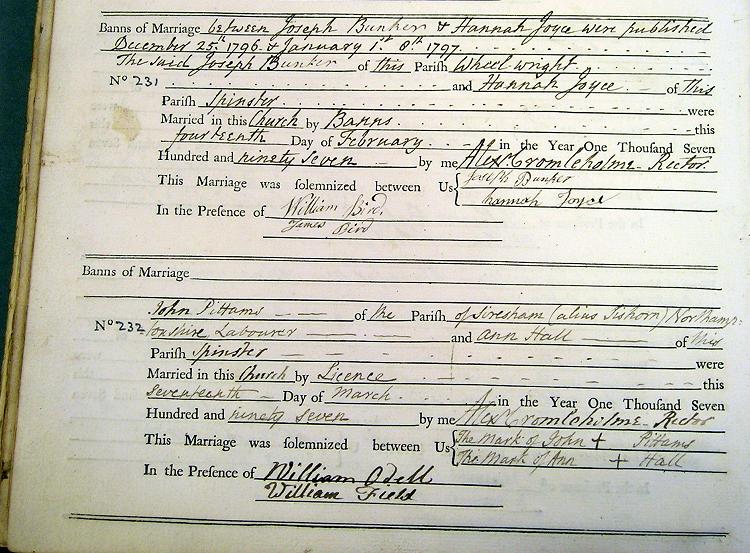 Banns of Marriage between Joseph Bunker & Hannah Joyce were published
December 25th 1796. & January 1st 8th 1797.
The said Joseph Bunker of this Parish Wheel wright
No 231 and Hannah Joyce of this
Parish Spinster were
Married in this Church by Banns this
fourteenth Day of February in the Year One Thousand Seven
Hundred and ninety seven by me Alexr Cromleholme Rector.
This Marriage was solemnized between Us Joseph Bunker
hannah Joyce
In the Presence of William Bird,
James Bird
Banns of Marriage
John Pittams of the Parish of Siresham (alias Sishorn) Northamp-
No 232 tonshire Labourer and Ann Hall of this
Parish Spinster were
Married in this Church by Licence this
Seventeenth Day of March in the Year One Thousand Seven
Hundred and ninety seven by me Alexr Cromleholme Rector
This Marriage was solemnized between Us The Mark of John + Pittams
The Mark of Ann + Hall
In the Presence of William Odell
William Field